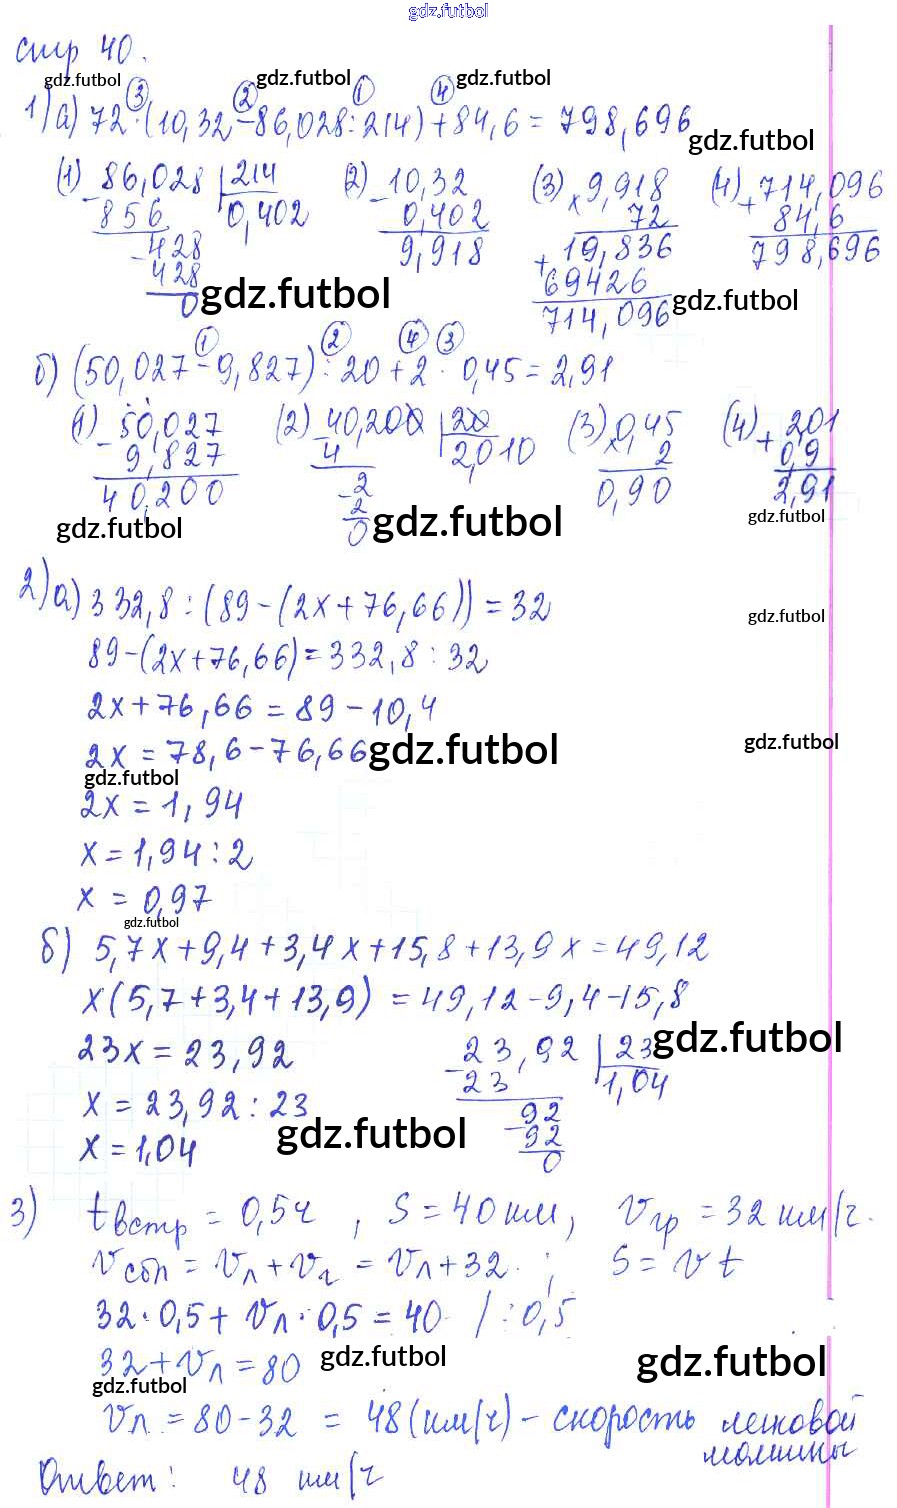 gdz.futbol
стр 40.
gdz.futbol gdz.futbol gdz.futbol
③ ② ① ④
1) а) 72 · (10,32 - 86,028 : 214) + 84,6 = 798,696
gdz.futbol
(1) 86,028 | 214 (2) 10,32 (3) × 9,918 (4) + 714,096
- 856 0,402 - 0,402 72 84,6
- 428 9,918 + 19,836 798,696
428 69426
0 gdz.futbol 714,096 gdz.futbol
① ② ④ ③
б) (50,027 - 9,827) : 20 + 2 · 0,45 = 2,91
(1) - 50,027 (2) - 40,200 | 20 (3) × 0,45 (4) + 2,01
9,827 4 2,010 2 0,9
40,200 - 2 0,90 2,91
2
gdz.futbol 0 gdz.futbol gdz.futbol
2) а) 332,8 : (89 - (2x + 76,66)) = 32
gdz.futbol
89 - (2x + 76,66) = 332,8 : 32
2x + 76,66 = 89 - 10,4
2x = 78,6 - 76,66 gdz.futbol gdz.futbol
gdz.futbol
2x = 1,94
x = 1,94 : 2
x = 0,97
gdz.futbol
б) 5,7x + 9,4 + 3,4x + 15,8 + 13,9x = 49,12
x(5,7 + 3,4 + 13,9) = 49,12 - 9,4 - 15,8
gdz.futbol
23x = 23,92 - 23,92 | 23
23 1,04
x = 23,92 : 23 - 92
x = 1,04 gdz.futbol 92
0
3) tвстр = 0,5ч, S = 40 км, vгр = 32 км/ч.
vсбл = vл + vг = vл + 32. ; S = v t
32 · 0,5 + vл · 0,5 = 40 / : 0,5
32 + vл = 80 gdz.futbol gdz.futbol
gdz.futbol
vл = 80 - 32 = 48 (км/ч) - скорость легковой
машины
Ответ: 48 км/ч